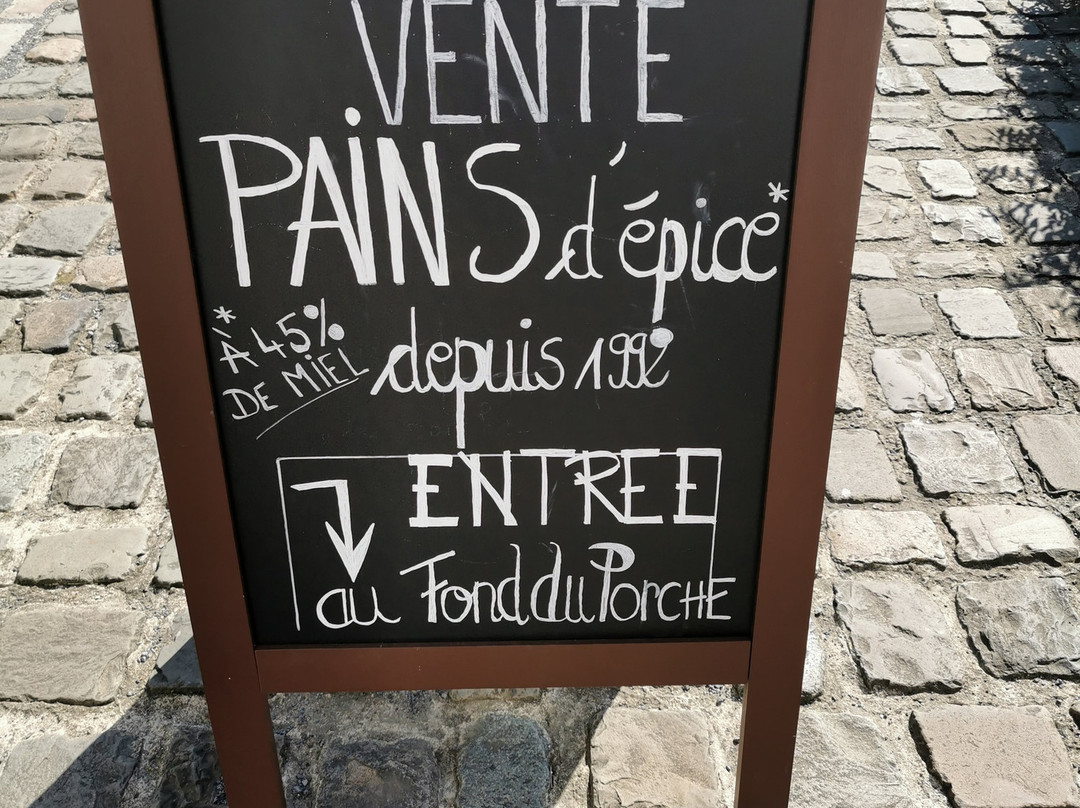 VENTE
PAiNS d'épice*
* À 45%
DE MiEL
depuis 1992
ENTREE
au Fond du PorcHE